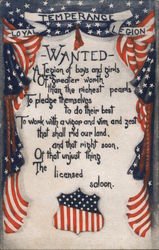 TEMPERANCE
LOYAL LEGION
-WANTED-
A legion of boys and girls
Of greater worth
than the richest pearls
To pledge themselves
to do their best
To work with a vigor and vim, and zest
that shall rid our land,
and that right soon,
Of that unjust thing
The
licensed
saloon.